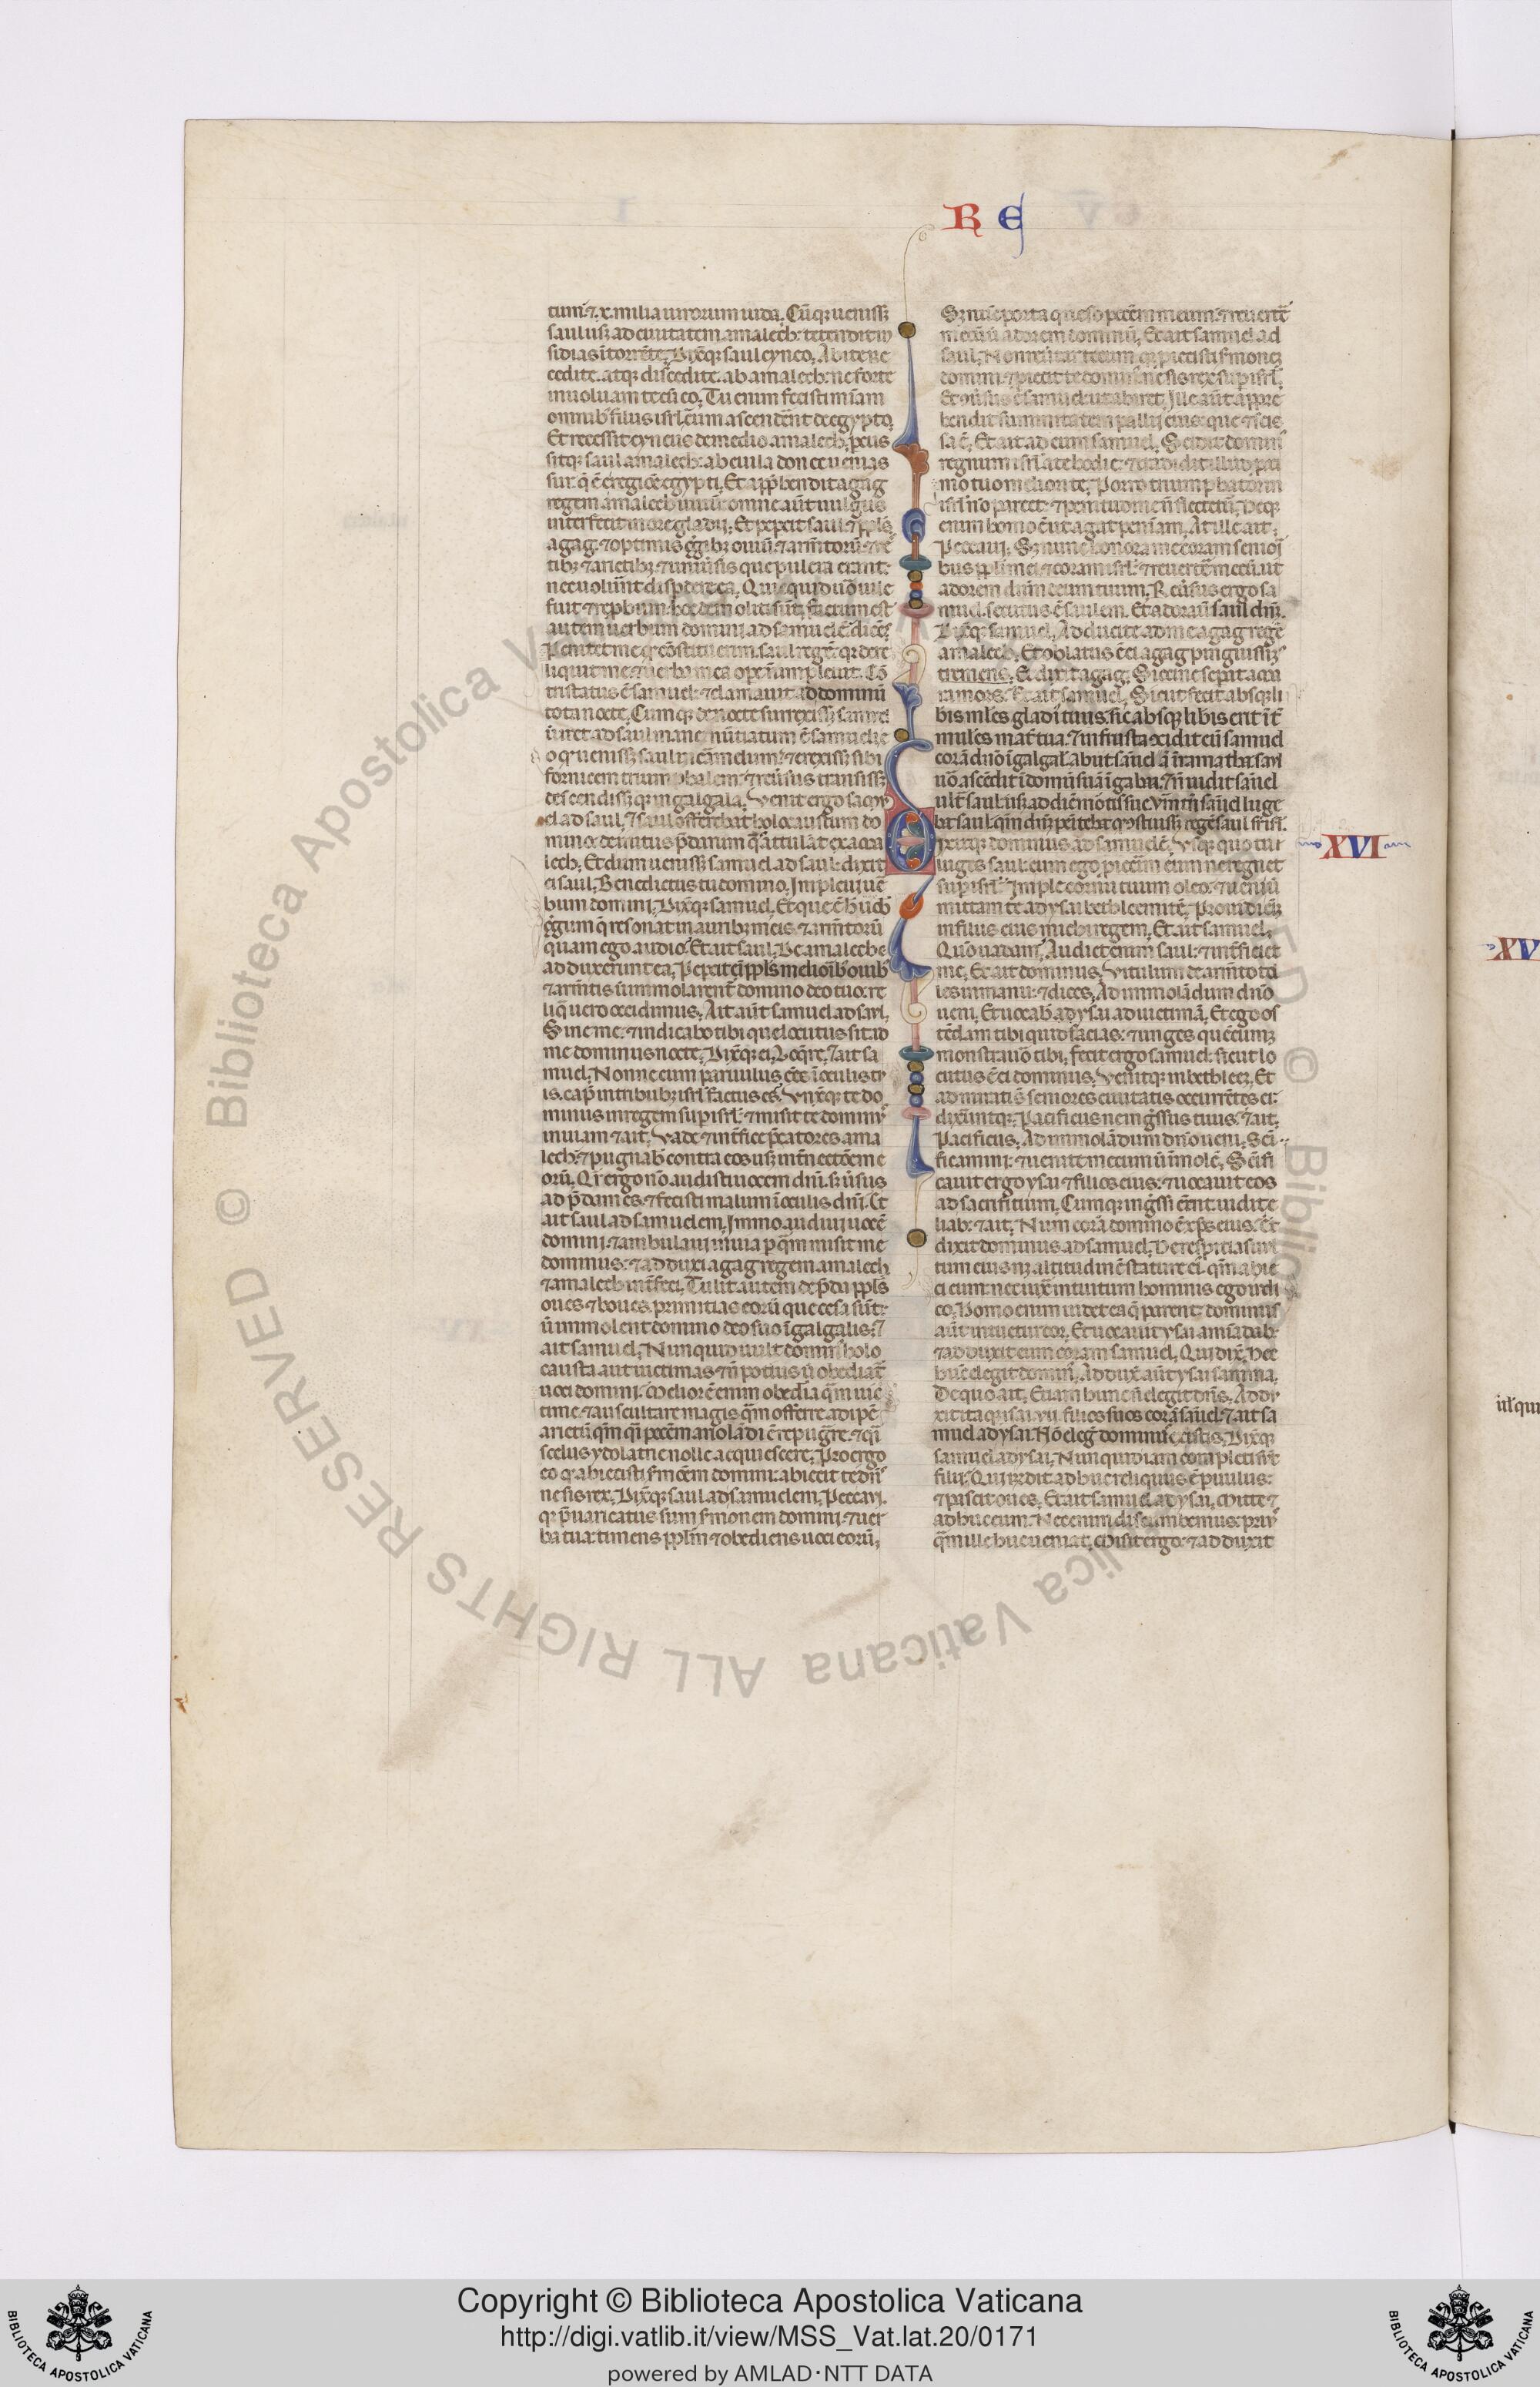 R E
tum ⁊ .x. milia uirorum iuda. Cūq; uenisset
saul usq; ad ciuitatem amalech: tetendit in
sidias ī torrēte. Dixitq; saul cyneo. Abite re
cedite. atq; discedite. ab amalech: ne forte
inuoluam te cū eo. Tu enim fecisti m̄iam
omnib; filiis isrl̄. cum ascendēnt de egypto.
Et recessit cyneus de medio amalech. percus
sitq; saul amalech: ab euila donec uenias
sur. q̄ ē e regiōe egypti. Et app̄hendit agag
regem amalech uiuū: omne aūt uulgus
interfecit in ore gladii. Et pepcit saul ⁊ ppl̄s
agag. ⁊ optimis g̊gib; ouiū. ⁊ armētorū. ⁊ ue
tib; ⁊ arietib; ⁊ uniūsis que pulcra erant:
nec uoluēnt disperdere ea. Quicquid ūo uile
fuit ⁊ rep̄bum: hoc demoliti sūt. factum est
autem uerbum domini ad samuelē dicēs.
Penitet me qd̄ cōstituerim saul regē: qr dere
liquit me. ⁊ uerba mea opere nō impleuit. Cō
tristatus ē samuel: ⁊ clamauit ad dominū
tota nocte. Cumq; de nocte surrexisset samuel
ūt iret ad saul mane. nūtiatum ē samueli e
o qr uenisset saul ī carmelum: ⁊ erexisset sibi
fornicem triumphalem. ⁊ reūsus transisset
descendissetq; in galgala. Venit ergo samu
el ad saul. ⁊ saul offerebat holocaustum do
mino: de initiis p̄darum q̄ attulat ex ama
lech. Et dum uenisset samuel ad saul: dixit
ei saul. Benedictus tu domino. Impleui uē
bum domini. Dixitq; samuel. Et que ē h̄ uox
g̊gum q̄ resonat in aurib; meis. ⁊ armētorū
quam ego audio. Et ait saul. De amaleche
adduxerunt ea. Pepcit eī ppl̄s meliorib; ouib;
⁊ armētis ūt immolarent̄ domino deo tuo: re
liq̄ uero occidimus. Ait aūt samuel ad saul.
Sine me: ⁊ indicabo tibi que locutus sit ad
me dominus nocte. Dixitq; ei. Loq̄re. ⁊ ait sa
muel. Nonne cum paruulus eēs ī oculis tu
is. cap̄ in tribub; isrl̄ factus es. Vnxitq; te do
minus in regem sup isrl̄. ⁊ misit te dominꝰ
in uiam ⁊ ait. Vade ⁊ int̄fice p̄catores ama
lech. ⁊ pugnab̄ contra eos usq; int̄nectōem e
orū. Qr̄ ergo nō audisti uocem dn̄i. sz ūsus
ad p̄dam es. ⁊ fecisti malum ī oculis dn̄i. Et
ait saul ad samuelem. Immo audiui uocē
domini. ⁊ ambulaui in uia p̄ q̄m misit me
dominus. ⁊ adduxi agag regem amalech
⁊ amalech int̄feci. Tulit autem de p̄da ppl̄s
oues ⁊ boues. primitias eorū que cesa sūt:
ūt immolent domino deo suo ī galgalis. ⁊
ait samuel. Nunquid uult dominꝰ holo
causta aut uictimas. ⁊ n̄ potius ūt obediat̄
uoci domini. Melior ē enim obed̄ia q̄m uic
time. ⁊ auscultare magis q̄m offerre adipē
arietū. qm̄ q̄i peccm̄ ariolādi ē repug̊re. ⁊ q̄i
scelus ydolatrie nolle acquiescere. Pro eo ergo
eo qr abiecisti sr̄mōem domini: abiecit te dn̄s
ne sis rex. Dixitq; saul ad samuelem. Peccaui.
qr p̄uaricatus sum sr̄monem domini. ⁊ uer
ba tua: timens ppl̄m ⁊ obediens uoci eorū.
Sz nūc porta queso peccm̄ meum. ⁊ reuertē
mecū ūt adorem dominū. Et ait samuel ad
saul. Non reūtar tecum. qr p̄iecisti sr̄monez
domini. ⁊ p̄iecit te dominꝰ ne sis rex sup isrl̄.
Et cōūsus ē samuel: ut abiret. Ille aūt appre
hendit summitatem pallii eius. que ⁊ scis
sa ē. Et ait ad eum samuel. Scidit dominꝰ
regnum isrl̄ a te hodie: ⁊ tradidit illud pxi
mo tuo meliori te. Porro triumphator in
isrl̄ nō parcet: ⁊ penitudine n̄ flectetur. Neq;
enim homo ē ūt agat penīam. At ille ait.
Peccaui. Sz nunc honora me coram seniori
bus ppl̄i mei. ⁊ coram isrl̄. ⁊ reuertē mecū ut
adorem dn̄m deum tuum. Reūsus ergo sa
muel. secutus ē saulem. Et adorauit saul dn̄m.
Dixitq; samuel. Adducite ad me agag regē
amalech. Et oblatus ē ei agag pinguissimꝰ
tremens. Et dixit agag. Siccine sepat ama
ra mors. Et ait samuel. Sicut fecit absq; li
bis mules gladiꝰ tuus. sic absq; libis erit īt
mulies mat̄ tua. ⁊ in frusta ɔcidit eū samuel
corā dn̄o ī galgal. abiit samuel ā ī ramatha. saul
ūo ascēdit ī domū suā ī gabaa. ⁊ n̄ uidit sāuel
ult̄ saul usq; ad diē mortis sue. Vm̄tn̄ sāuel luge
bat saul. qm̄ dn̄z penitebat qd̄ ɔstituisset regē saul sr̄ isrl̄.
Dixitq; dominus ad samuelē. Vsq; quo tu
luges saul: cum ego p̄iecerim eum ne regnet
sup isrl̄. Imple cornu tuum oleo. ⁊ ueni ūt
mittam te ad ysai bethleemitē. Prouidi eīz
in filiis eius michi regem. Et ait samuel.
Quō uadam. Audiet enim saul. ⁊ int̄ficiet
me. Et ait dominus. Vitulum de armēto tol
les in manu: ⁊ dices. Ad immolādum dn̄o
ueni. Et uocab̄ ad ysai ad uictimā. Et ego os
tēdam tibi quid facias. ⁊ unges quēcumz
monstrauō tibi. fecit ergo samuel. sicut lo
cutus ē ei dominus. Venitq; in bethleez. Et
admirati sūt seniores ciuitatis occurrētes ei:
dixeruntq;. Pacificus ne ingressus tuus. ⁊ ait.
Pacificus. Ad immolādum dn̄o ueni. Scī
ficamini: ⁊ uenite mecum ūt īmolē. Scīfi
cauit ergo ysai ⁊ filios eius. ⁊ uocauit eos
ad sacrificium. Cumq; ingressi eēnt. uidit e
liab. ⁊ ait. Num corā domino ē xp̄s eius. Et
dixit dominus ad samuel. Ne respicias uul
tum eius nz altitudinē stature eiꝰ. qm̄ abie
ci eum: nec iuxta intuitum hominis ego iudi
co. Homo enim uidet ea q̄ parent: dominus
aūt intuetur cor. Et uocauit ysai aminadab.
⁊ adduxit eum coram samuel. Qui dix̄. Nec
hunc elegit dominꝰ. Adduxit aūt ysai samma.
De quo ait. Etiam hunc n̄ elegit dn̄s. Addu
xit itaq; isai .vii. filios suos corā sāuel. ⁊ ait sa
muel ad ysai. Nō eleg̅ dominus ex istis. Dixitq;
samuel ad ysai. Nunquid iam completi sūt
filii. Qui rn̄dit. adhuc reliquus ē puulus:
⁊ pascit oues. Et ait samuel ad ysai. Mitte ⁊
adhuc eum. Nec enim discumbemus. priꝰ
q̄m ille huc ueniat. Misit ergo. ⁊ adduxit
XVI
XV
Copyright © Biblioteca Apostolica Vaticana
http://digi.vatlib.it/view/MSS_Vat.lat.20/0171
powered by AMLAD·NTT DATA
BIBLIOTECA APOSTOLICA VATICANA
BIBLIOTECA APOSTOLICA VATICANA